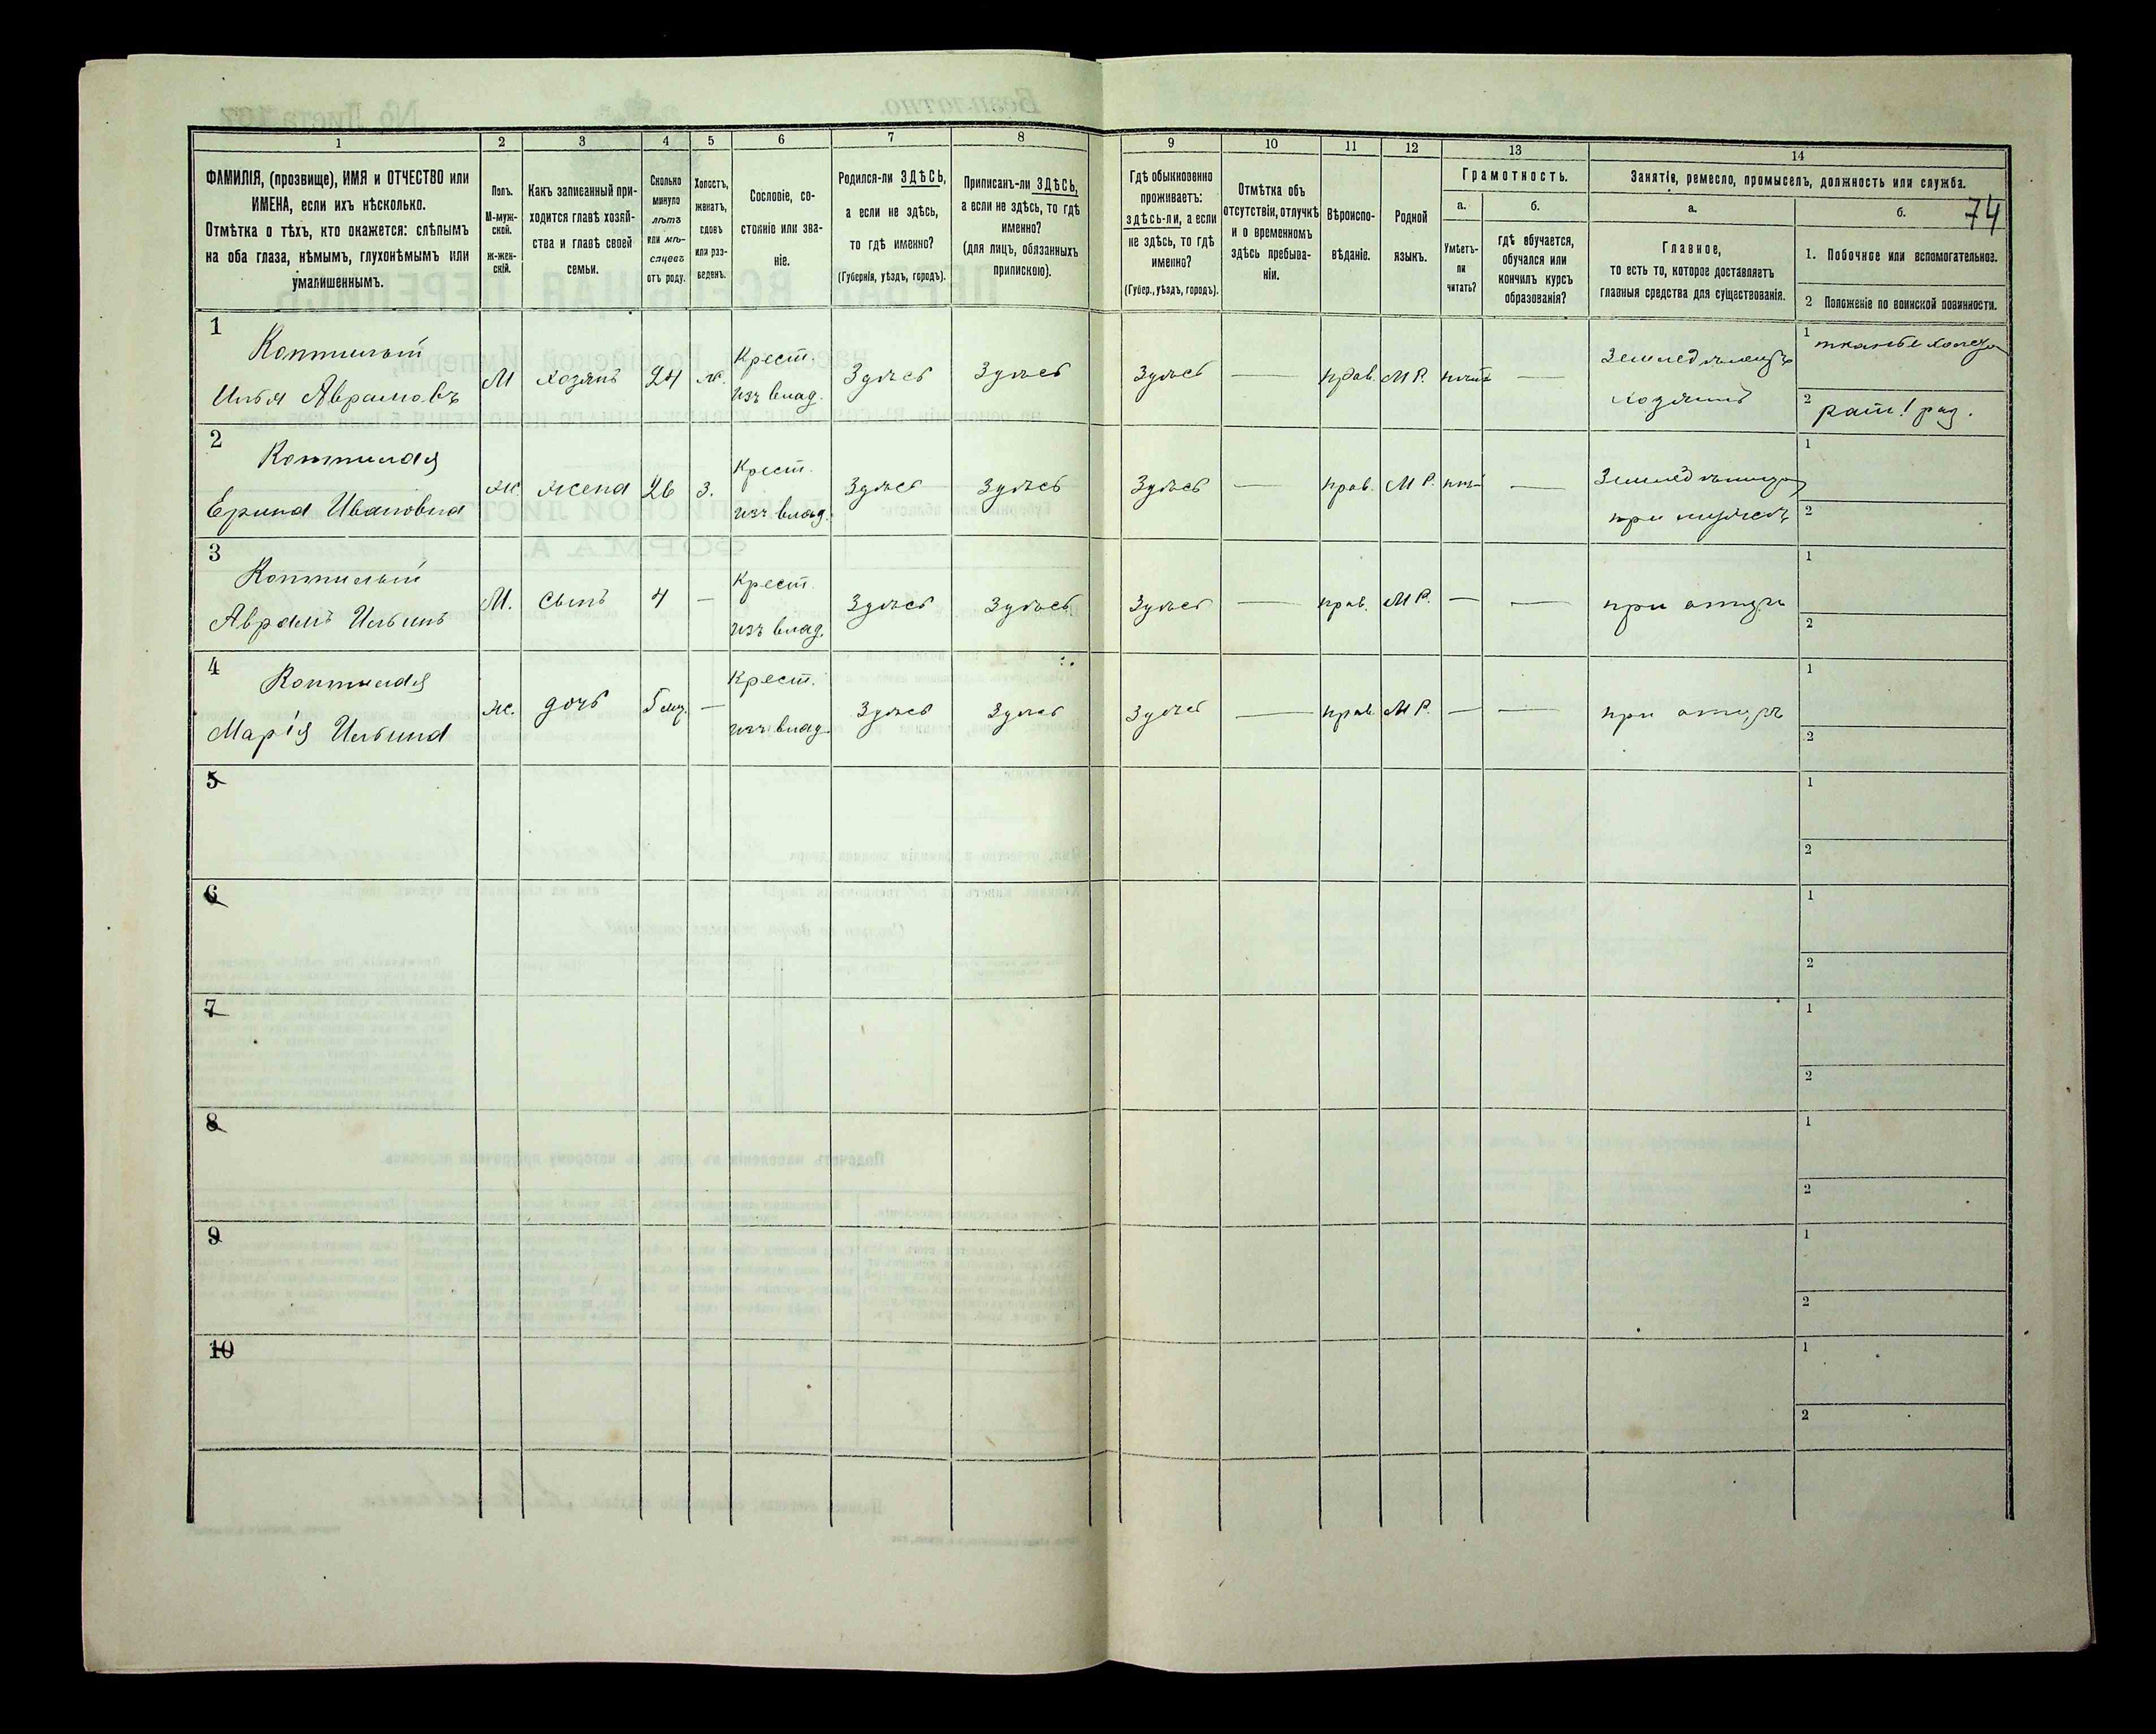 1
2
3
4
5
6
7
8
9
10
11
12
13
14
ФАМИЛІЯ, (прозвище), ИМЯ и ОТЧЕСТВО или
ИМЕНА, если ихъ нѣсколько.
Отмѣтка о тѣхъ, кто окажется: слѣпымъ
на оба глаза, нѣмымъ, глухонѣмымъ или
умалишеннымъ.
Полъ.
М-муж-
ской.
Ж-жен-
скій.
Какъ записанный при-
ходится главѣ хозяй-
ства и главѣ своей
семьи.
Сколько
минуло
лѣтъ
или мѣ-
сяцевъ
отъ роду.
Холостъ,
женатъ,
вдовъ
или раз-
веденъ.
Сословіе, со-
стояніе или зва-
ніе.
Родился-ли ЗДѢСЬ,
а если не здѣсь,
то гдѣ именно?
(Губернія, уѣздъ, городъ).
Приписанъ-ли ЗДѢСЬ,
а если не здѣсь, то гдѣ
именно?
(для лицъ, обязанныхъ
припискою).
Гдѣ обыкновенно
проживаетъ:
здѣсь-ли, а если
не здѣсь, то гдѣ
именно?
(Губер., уѣздъ, городъ).
Отмѣтка объ
отсутствіи, отлучкѣ
и о временномъ
здѣсь пребыва-
ніи.
Вѣроиспо-
вѣданіе.
Родной
языкъ.
Грамотность.
а.
Умѣетъ-
ли
читать?
б.
гдѣ обучается,
обучался или
кончилъ курсъ
образованія?
Занятіе, ремесло, промыселъ, должность или служба.
а.
Главное,
то есть то, которое доставляетъ
главныя средства для существованія.
б.
74
1. Побочное или вспомогательное.
2 Положеніе по воинской повинности.
1
Коптилый
Илья Аврамовъ
М хозяинъ 24 ж.
Крест.
изъ влад.
Здѣсь Здѣсь Здѣсь — прав. М.Р. —
Земледѣлецъ
хозяинъ
1
2 рат. 1 раз.
2
Коптилая
Ерина Ивановна
ж. жена 26 з.
Крест.
изъ влад.
Здѣсь Здѣсь Здѣсь — прав. М.Р. —
при мужѣ
1
2
3
Коптилый
Аврамъ Ильинъ
М. сынъ 4 —
Крест.
изъ влад.
Здѣсь Здѣсь Здѣсь — прав. М.Р. — —
при отцѣ
1
2
4
Коптилая
Марія Ильина
ж. дочь 5 мѣ. —
Крест.
изъ влад.
Здѣсь Здѣсь Здѣсь — прав. М.Р. — —
при отцѣ
1
2
5
1
2
6
1
2
7
1
2
8
1
2
9
1
2
10
1
2